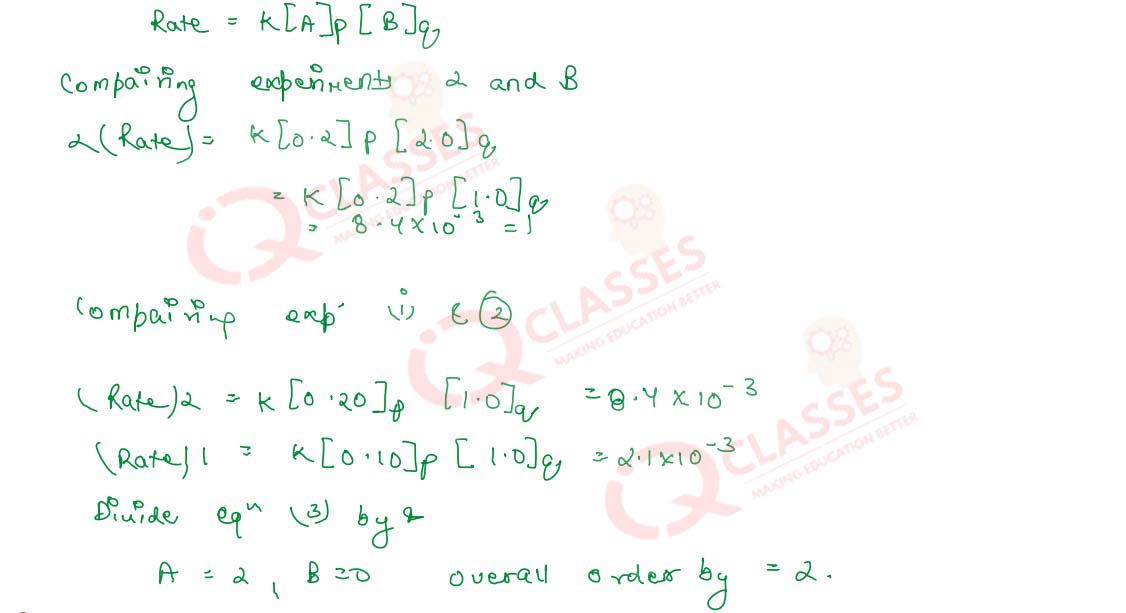 Rate = K[A]p [B]q
Compairing experiments 2 and B
2(Rate) = K[0.2] p [2.0] q
= K [0.2]p [1.0]q
= 8.4×10⁻³ = 1
Compairing exp (i) & ②
(Rate)2 = K [0.20]p [1.0]q = 8.4 × 10⁻³
(Rate)1 = K[0.10]p [1.0]q = 2.1×10⁻³
Divide eqⁿ (3) by 2
A = 2, B = 0 overall order by = 2.
IQ CLASSES
MAKING EDUCATION BETTER
IQ CLASSES
MAKING EDUCATION BETTER
IQ CLASSES
MAKING EDUCATION BETTER